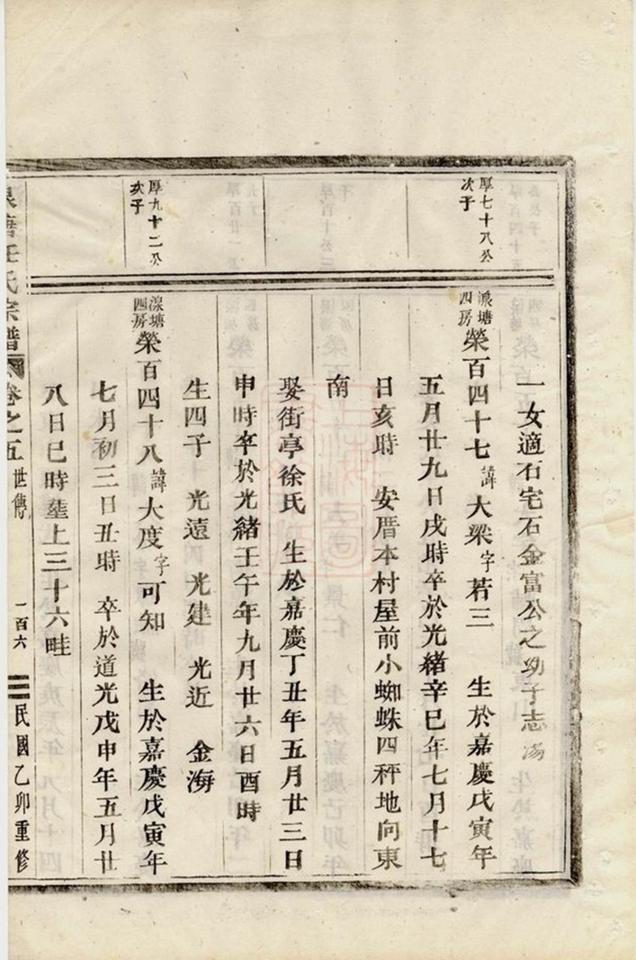 一女適石宅石金富公之幼子志
厚七十八公
次子
溑塘
四房
榮百四十七諱大梁字若三 生於嘉慶戊寅年
五月廿九日戌時卒於光緒辛巳年七月十七
日亥時 安厝本村屋前小蜘蛛四秤地向東
南
娶街亭徐氏 生於嘉慶丁丑年五月廿三日
申時卒於光緒壬午年九月廿六日酉時
生四子 光遠 光建 光近 金海
厚九十二公
次子
溑塘
四房
榮百四十八諱大度字可知 生於嘉慶戊寅年
七月初三日丑時 卒於道光戊申年五月廿
八日巳時塟上三十六畦
塘任氏宗譜 卷之五 世傳 一百六 民國乙卯重修